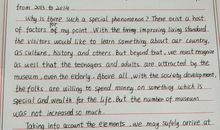 from 2013 to 2014.
Why is there such a special phenomenon? There exist a host
of factors of my point. With the improving living standard,
the visitors would like to learn something about our country,
as culture, history and others. But beyond that, we must recognize
as well that the teenagers and adults are attracted by the
museum, even the elderly. Above all, with the society development,
the folks are willing to spend money on something which is
special and wealth for the life. But the number of museum
was not increased so much.
Taking into account the elements, we may safely arrive at